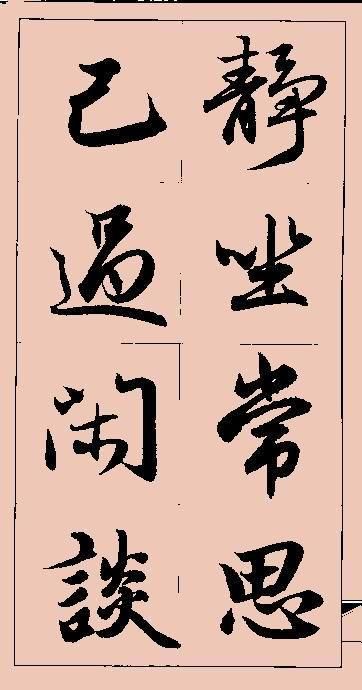 靜坐常思
己過閑談